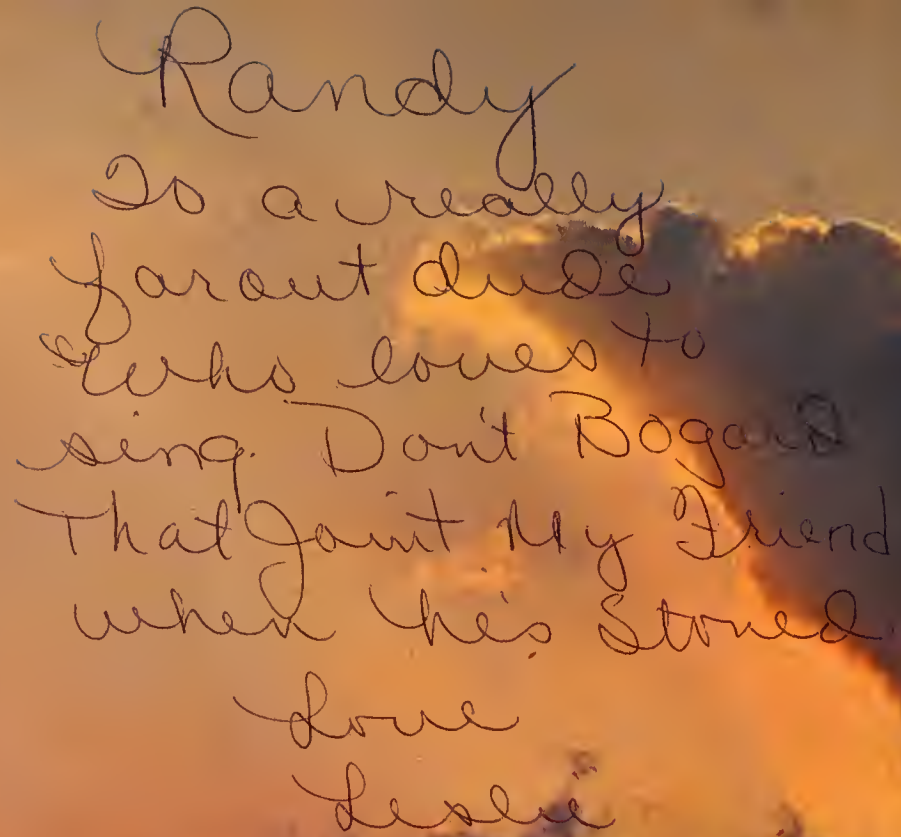 Randy
To a really
farout dude
who loves to
sing. Don't Bogard
That Joint My Friend
when he's Stoned.
Love
Leslie